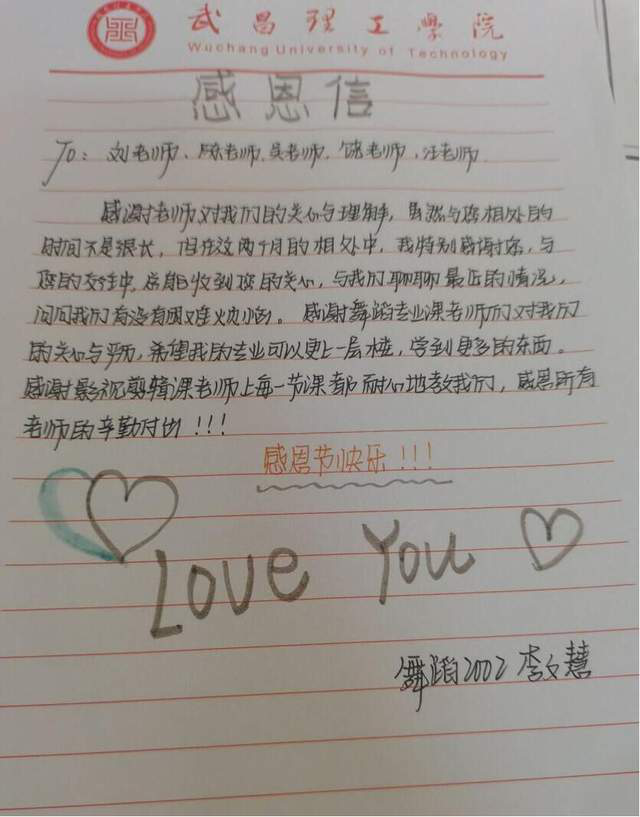 武昌理工學院
Wuchang University of Technology
感恩信
To: 刘老师、陈老师、吴老师、饶老师、汪老师
感谢老师对我们的关心与理解,虽然与您相处的
时间不是很长,但在这两个月的相处中,我特别感谢您,与
您的交往中,总能收到您的关心,与我们聊聊最近的情况,
问问我们有没有困难烦恼。感谢舞蹈专业课老师们对我们
的关心与严厉,希望我的专业可以更上一层楼,学到更多的东西。
感谢影视剪辑课老师上每一节课都耐心地教我们,感恩所有
老师的辛勤付出!!!
感恩节快乐!!!
Love You
舞蹈2002 李文慧